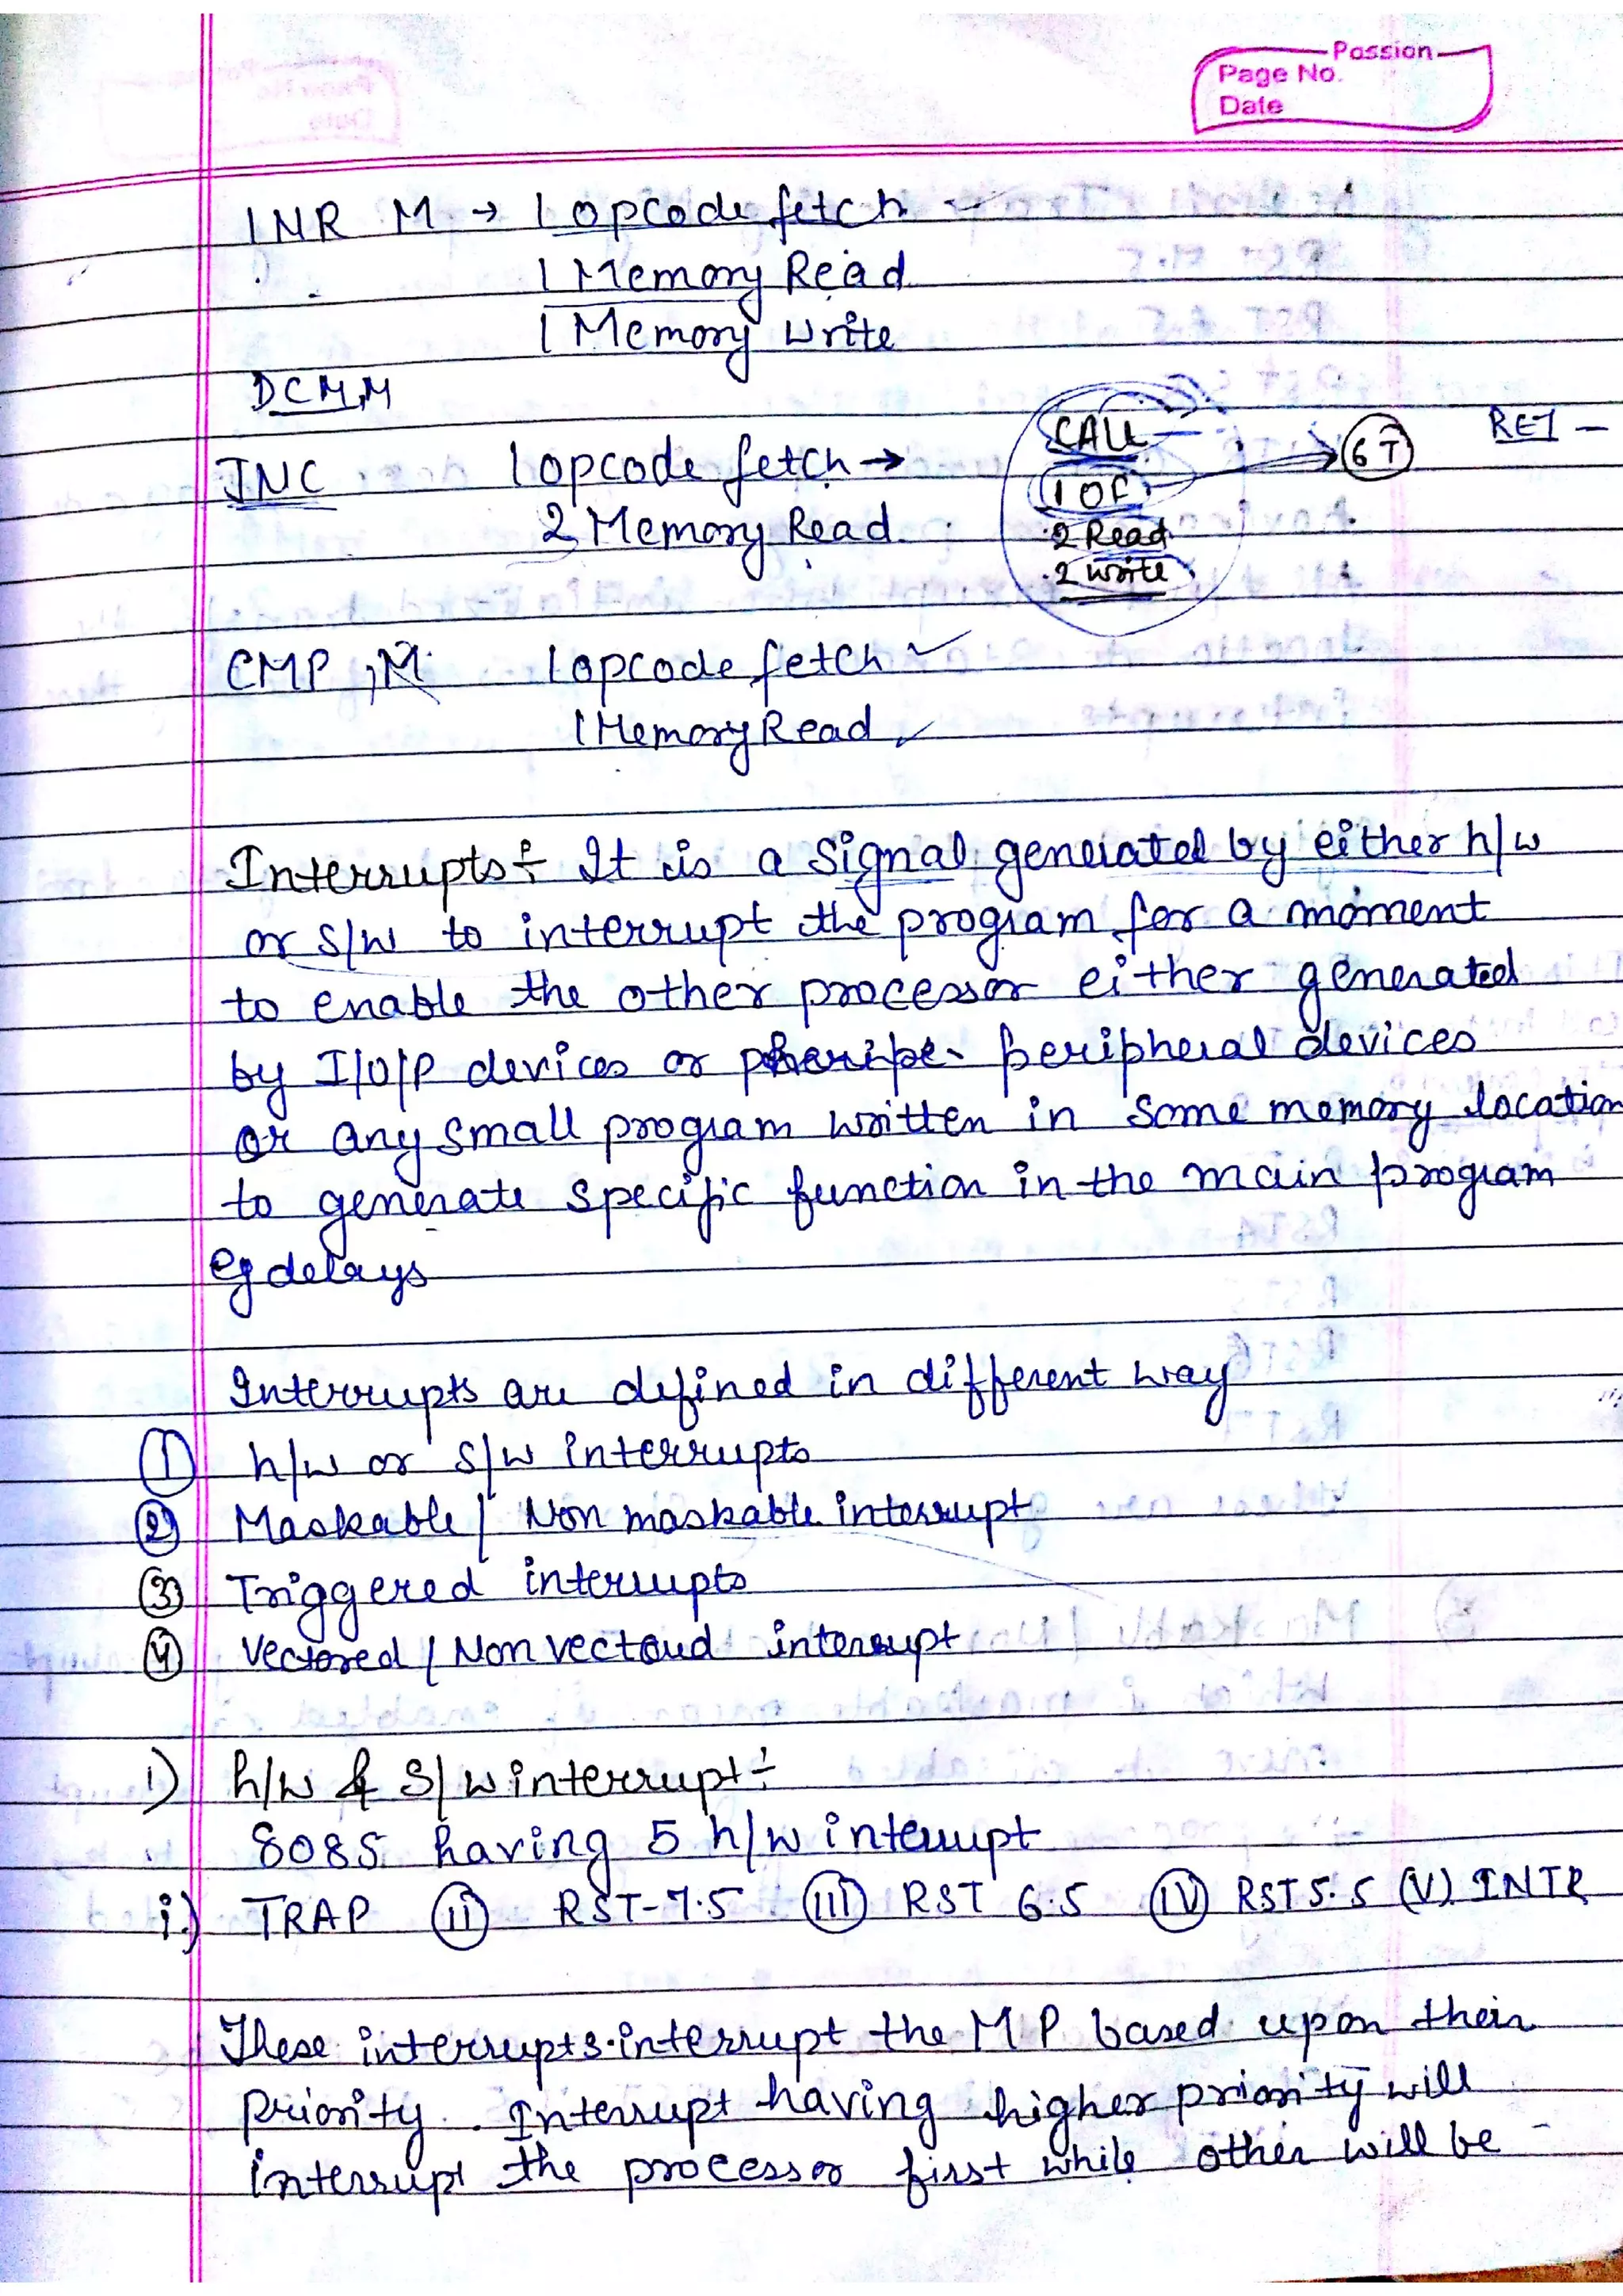 Passion
Page No.
Date
INR M → 1 opcode fetch
1 Memory Read
1 Memory write
DCM,M
JNC 1 opcode fetch →
2 Memory Read
CALL
1 OF → 6T
2 Read
2 write
RET -
CMP, M 1 opcode fetch ✓
1 Memory Read ✓
Interrupts ÷ It is a signal generated by either h/w
or s/w to interrupt the program for a moment
to enable the other processor either generated
by I/O/P devices or peripheral devices
or any small program written in some memory location
to generate specific function in the main program
eg delays
Interrupts are defined in different way
① h/w or s/w interrupts
② Maskable / Non maskable interrupt
③ Triggered interrupts
④ Vectored / Non vectored interrupt
1) h/w & s/w interrupt ÷
8085 having 5 h/w interrupt
i) TRAP (ii) RST-7.5 (iii) RST 6.5 (iv) RST 5.5 (v) INTR
These interrupts interrupt the MP based upon their
priority. Interrupt having higher priority will
interrupt the processor first while other will be